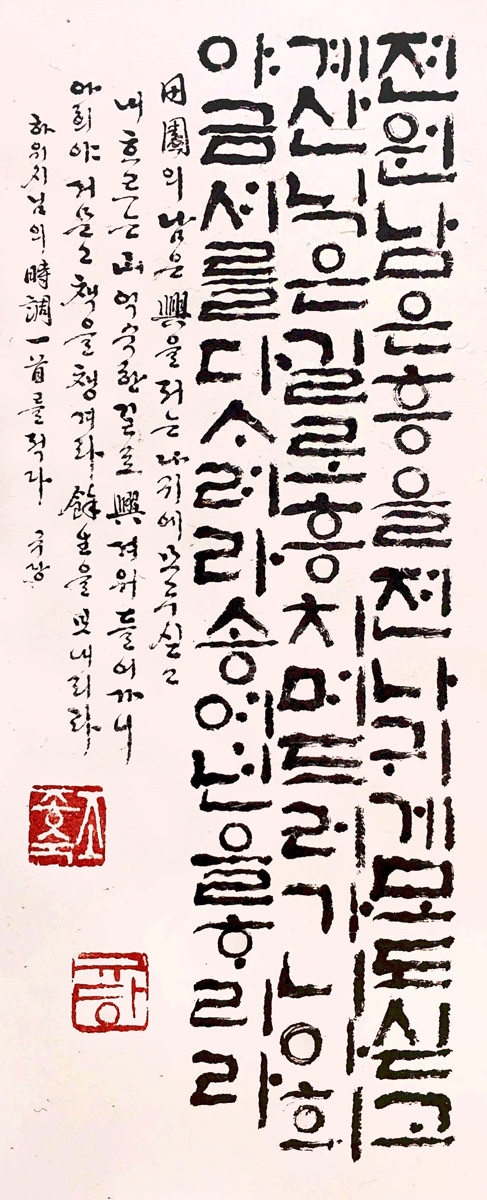 젼원남은흥을젼나귀게모도싣고
계산닉은길로흥치며드러가니아희
야금셔를다ᄉᆞ려라송여년을ᄒᆞ리라
田園의 남은 興을 저는 나귀에 모두 싣고
내 흐르는 山 익숙한 길로 興겨워 들어가니
아희야 거문고 책을 챙겨라 餘生을 보내리라
하위지님의 時調 一首를 적다 규당
조종숙
규당